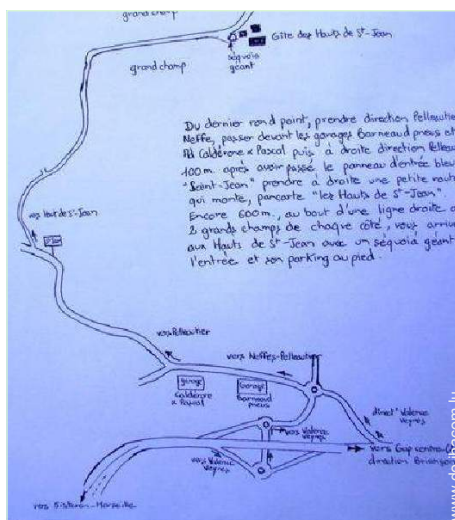 grand champ
Gîte des Hauts de St-Jean
séquoia
géant
grand champ
Du dernier rond point, prendre direction Pelleautier
Neffe, passer devant les garages Barneaud pneus et
Calderone x Pascal puis à droite direction
100 m après avoir passé le panneau d'entrée bleu
"Saint-Jean" prendre à droite une petite
qui monte, pancarte "les Hauts de St-Jean".
Encore 600m, au bout d'une ligne droite
2 grands champs de chaque côté, vous
aux Hauts de St-Jean avec un séquoia géant
l'entrée et son parking au pied.
vers Haut de St-Jean
St Jean
vers Pelleautier
vers Neffes-Pelleautier
garage
Calderone
x Pascal
Garage
Barneaud
pneus
direct° Valence
Veynes
vers Valence
Veynes
vers Valence
Veynes
vers Gap centre
direction Briançon
vers Sisteron-Marseille